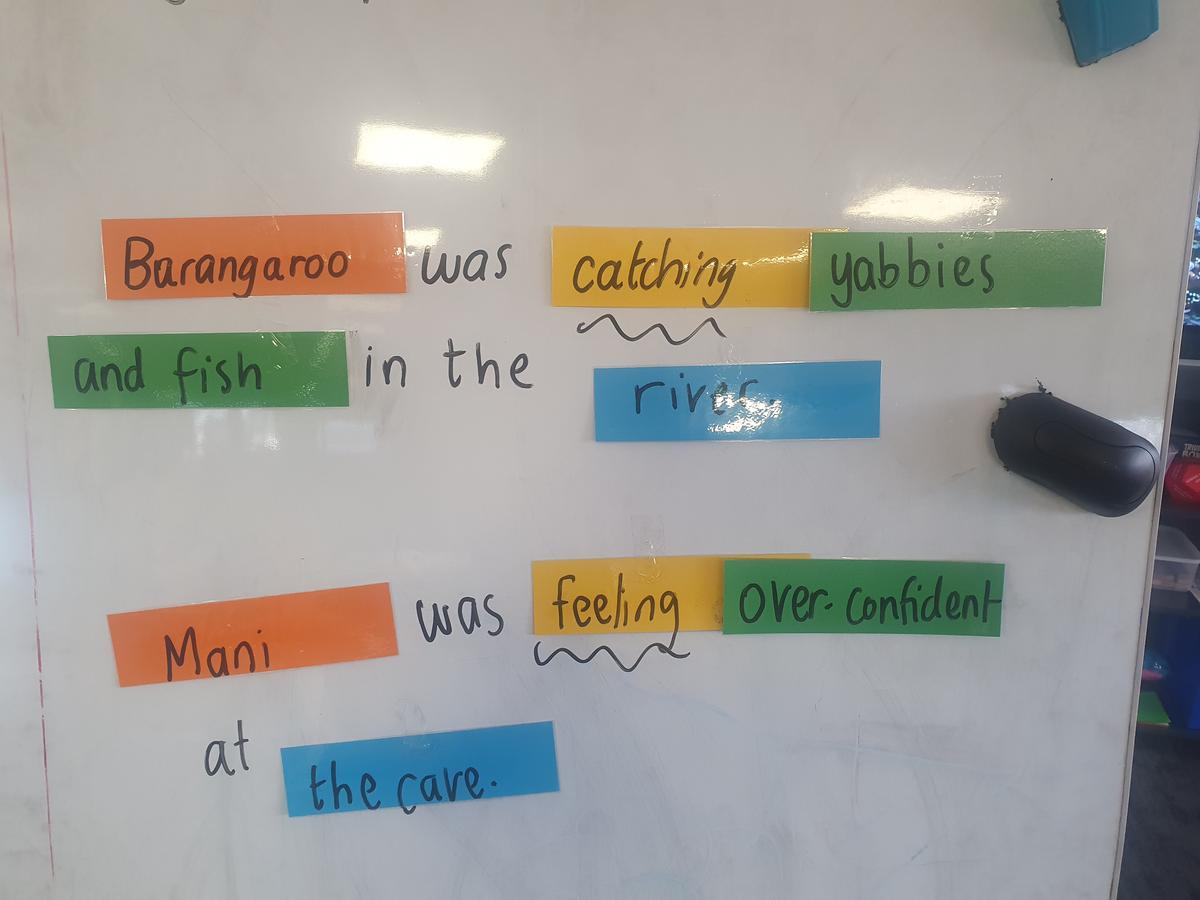 Barangaroo was catching yabbies
and fish in the river.
Mani was feeling over-confident
at the cave.